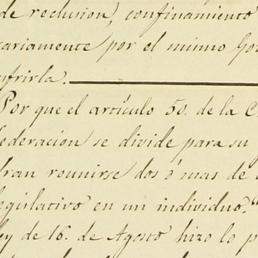 de reclusion, confinamiento
cariamente por el mismo Gob
ufrirla.
Por que el artículo 50. de la C
ederacion se divide para su
dran reunirse dos ó mas de e
legislativo en un individuo."
ley de 16. de Agosto hizo lo p